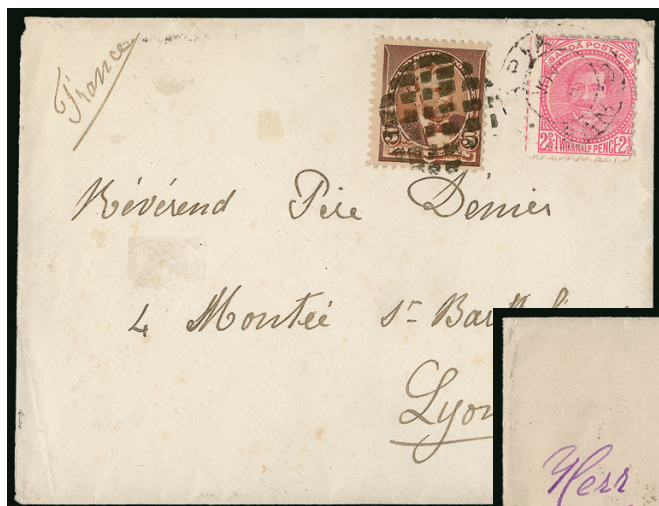 France
SAMOA POSTAGE
5 5
2½ TWO & HALF PENCE 2½
Révérend Père Denier
4 Montée St Barthél
Lyon
Herr